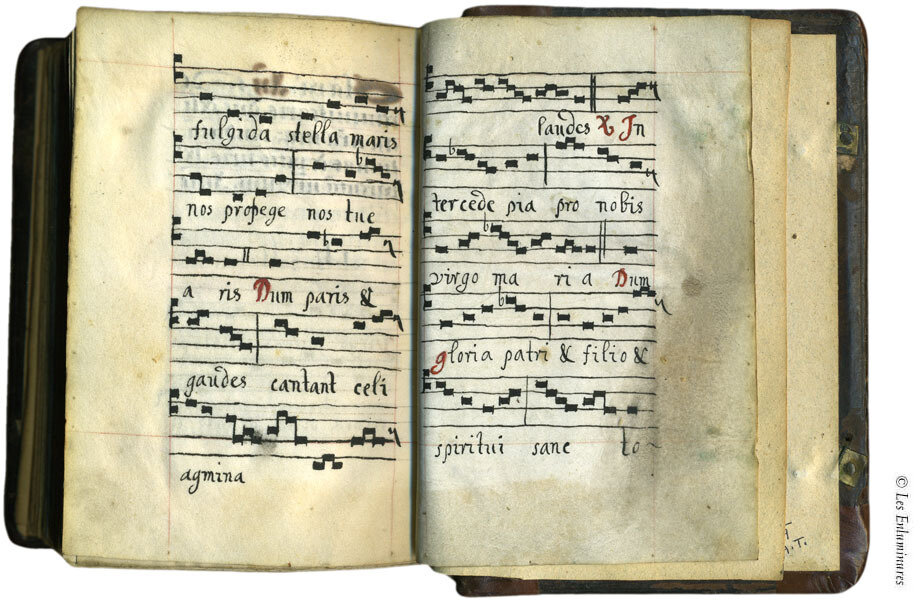 fulgida stella maris
nos protege nos tue
a ris Dum paris &
gaudes cantant celi
agmina
laudes ℟ In
tercede pia pro nobis
virgo ma ri a Dum
gloria patri & filio &
spiritui sanc to
© Les Enluminures